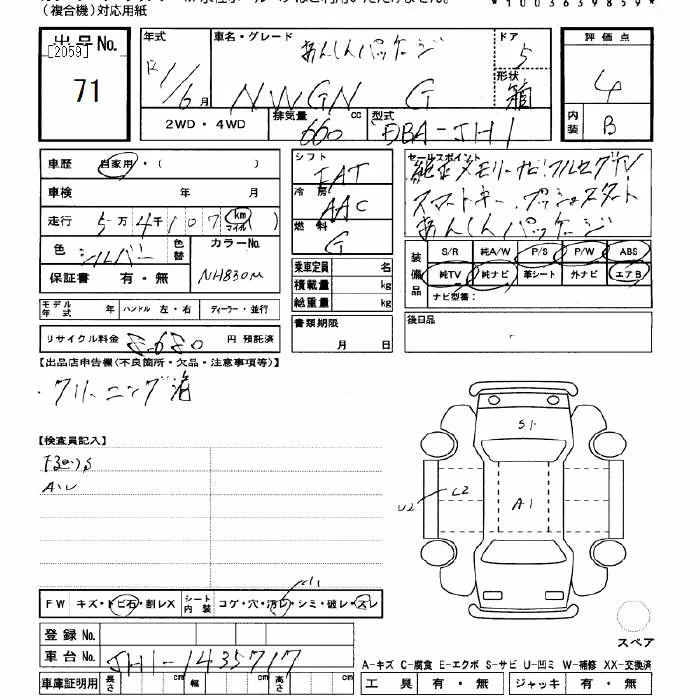 (複合機)対応用紙
出品No. 年式 車名・グレード あんしんパッケージ ドア 5 評価点
[2059] 71 1/6月 NWGN G 形状 箱 4
2WD・4WD 排気量 660 cc 型式 DBA-JH1 内装 B
車歴 自家用・( ) シフト FAT セールスポイント 純正メモリーナビ・フルセグTV
車検 年 月 冷房 AAC スマートキー・プッシュスタート
走行 5万4千107 km マイル 燃料 G あんしんパッケージ
色 シルバー 色替 カラーNo. NH830M
装備品 S/R 純A/W P/S P/W ABS
保証書 有・無 乗車定員 名 純TV 純ナビ 革シート 外ナビ エアB
積載量 kg ナビ型番:
モデル年式 年 ハンドル 左・右 ディーラー・並行 総重量 kg
リサイクル料金 円 預託済 書類期限 月 日 後日品
【出品店申告欄(不良箇所・欠品・注意事項等)】
・クリーニング済
【検査員記入】
S1
U2 L2 A1
FW キズ・トビ石・割レX シート内装 コゲ・穴・汚レ・シミ・破レ・スレ
登録No.
車台No. JH1-1435717
スペア
A-キズ C-腐食 E-エクボ S-サビ U-凹ミ W-補修 XX-交換済
車庫証明用 長さ cm 幅 cm 高さ cm 工具 有・無 ジャッキ 有・無